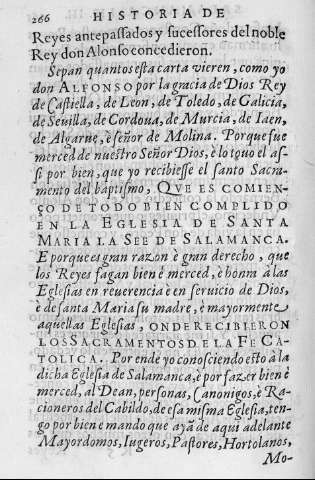 266 HISTORIA DE
Reyes antepassados y sucessores del noble
Rey don Alonso concedieron.
Sepan quantos esta carta vieren, como yo
don ALFONSO por la gracia de Dios Rey
de Castiella, de Leon, de Toledo, de Galicia,
de Seuilla, de Cordoua, de Murcia, de Iaen,
de Algarue, è señor de Molina. Porque fue
merced de nuestro Señor Dios, è lo touo el as-
si por bien, que yo recibiesse el santo Sacra-
mento del baptismo, QVE ES COMIEN-
ÇO DE TODO BIEN COMPLIDO
EN LA EGLESIA DE SANTA
MARIA LA SEE DE SALAMANCA.
E porque es gran razon è gran derecho, que
los Reyes fagan bien è merced, è honra à las
Eglesias en reuerencia è en seruicio de Dios,
è de santa Maria su madre, è mayormente
aquellas Eglesias, ONDE RECIBIERON
LOS SACRAMENTOS DE LA FE CA-
TOLICA. Por ende yo conosciendo esto à la
dicha Eglesia de Salamanca, è por fazer bien è
merced, al Dean, personas, Canonigos, è Ra-
cioneros del Cabildo, de esa misma Eglesia, ten-
go por bien e mando que ayã de aqui adelante
Mayordomos, Iugeros, Pastores, Hortolanos,
Mo-